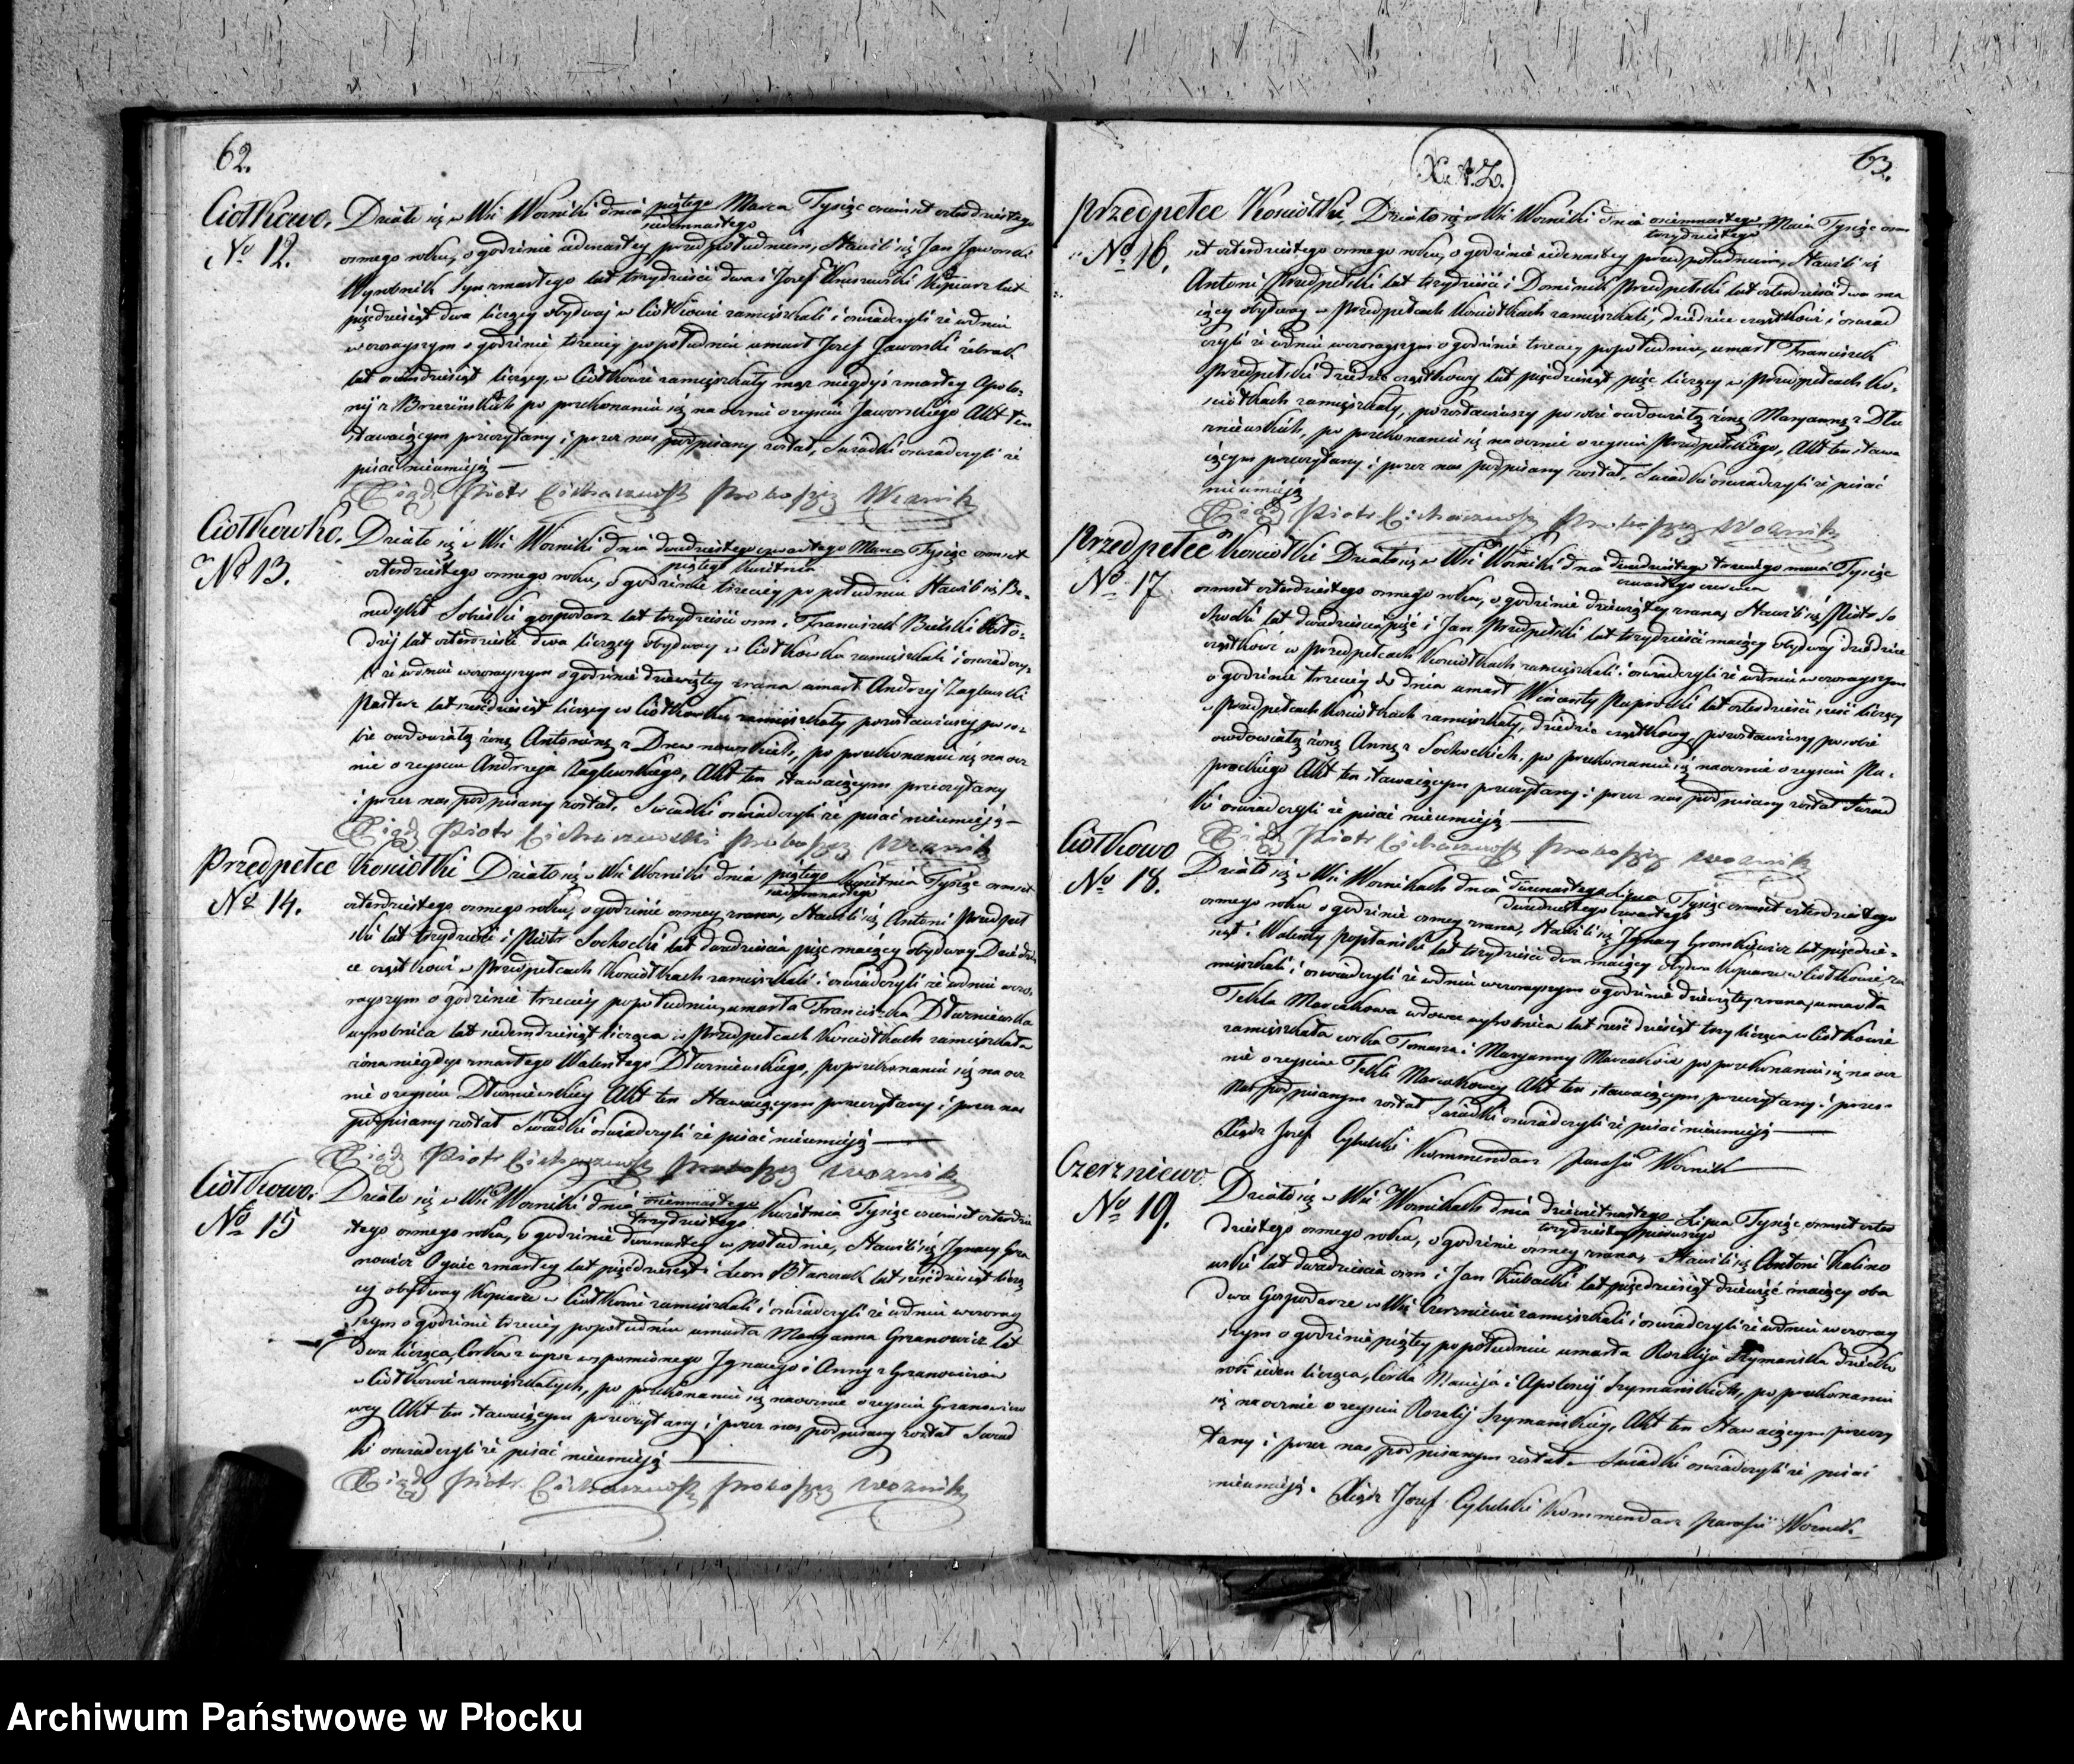 62.
Ciołkowo.
No 12.
Działo się w Wsi Worniki dnia piątego Marca Tysiąc ośmset czterdziestego
siedemnastego
osmego roku, o godzinie iedenastey przed południem, Stawili się Jan Jaworski
Wyrobnik Syn zmarłego lat trzydzieści dwa i Jozef Kopiarz lat
pięćdziesiąt dwa liczący obydwaj w Ciołkowie zamieszkali i oswiadczyli że w dniu
wczorayszym o godzinie trzeciey popołudniu umarł Jozef Jaworski żebrak
lat liczący, w Ciołkowie zamieszkały mąż niegdyś zmarłey Apolo-
nij z Brzezińskich po przekonaniu się na ocznie o zejsciu Jaworskiego Akt ten
stawaiącym przeczytany i przez nas podpisany został, Swiadki oswiadczyli że
pisać nieumieją —
Xiądz Piotr Cichaczewski Proboszcz Wornik
Ciołkowko.
No 13.
Działo się w Wsi Worniki dnia dwudziestego czwartego Marca Tysiąc osmset
piątego Kwietnia
czterdziestego osmego roku, o godzinie trzeciey po południu Stawili się Be-
nedykt Sobieski gospodarz lat trzydzieści osm i Franciszek Bielski Koło-
dziej lat czterdzieści dwa liczący obydway w Ciołkowku zamieszkali i oswiadczy-
li że w dniu wczorayszym o godzinie dziewiątey zrana umarł Andrzej Zaglewski
Pastuz lat sześćdziesiąt liczący w Ciołkowku zamieszkały pozostawiwszy po so-
bie owdowiałą żonę Antoninę z Drewnowskich, po przekonaniu się na ocz
nie o zejsciu Andrzeja Zaglewskiego, Akt ten stawaiącym przeczytany
i przez nas podpisany został. Swiadki oswiadczyli że pisać nieumieją —
Xiądz Piotr Cichaczewski Proboszcz Wornik
Przedpełce Kosciołki
No 14.
Działo się w Wsi Worniki dnia piątego Kwietnia Tysiąc osmset
siedemnastego
czterdziestego osmego roku, o godzinie osmey zrana, Stawili się Antoni Przedpeł
ski lat trzydzieści i Piotr Sochocki lat dwadzieścia pięć maiący obydway Dziedzi
ce cząstkowi w Przedpełcach Kosciołkach zamieszkali i oswiadczyli że w dniu wczo-
rayszym o godzinie trzeciey popołudniu, umarła Franciszka Dłuzniewska
wyrobnica lat siedemdziesiąt licząca w Przedpełcach Kosciołkach zamieszkała
żona niegdyś zmarłego Walentego Dłuzniewskiego, po przekonaniu się na ocz
nie o zejsciu Dłuzniewskiey Akt ten Stawaiącym przeczytany i przez nas
podpisany został Swiadki oswiadczyli że pisać nieumieją —
Xiądz Piotr Cichaczewski Proboszcz Wornik
Ciołkowo.
No 15
Działo się w Wsi Worniki dnia osiemnastego Kwietnia Tysiąc osmset czterdzie
trzydziestego
stego osmego roku, o godzinie dwunastey w południe, Stawili się Jgnacy Grza
nowicz Oyciec zmarłey lat pięćdziesiąt i Leon Błaszczak lat sześćdziesiąt licz
cy obydway Kopiarze w Ciołkowie zamieszkali i oswiadczyli że w dniu wczoray
szym o godzinie trzeciey popołudniu umarła Maryanna Grzanowicz lat
dwa licząca, Corka z wyżej wspomnionego Jgnacego i Anny z Grzanowiczow
w Ciołkowie zamieszkałych, po przekonaniu się naocznie o zejsciu Grzanowiczo
wey Akt ten stawaiącym przeczytany i przez nas podpisany został Swiad
ki oswiadczyli że pisać nieumieją —
Xiądz Piotr Cichaczewski Proboszcz Wornik
63.
X. A. Z.
Przedpełce Kosciołki,
No 16.
Działo się w Wsi Worniki dnia osiemnastego Maia Tysiąc osm
trzydziestego
set czterdziestego osmego roku, o godzinie iedenastey przed południem, Stawili się
Antoni Przedpełski lat trzydzieści i Dominik Przedpełski lat czterdzieści dwa ma
iący obydway w Przedpełcach Kosciołkach zamieszkali, dziedzice cząstkowi i oswiad
czyli że w dniu wczorayszym o godzinie trzeciey popołudniu, umarł Franciszek
Przedpełski dziedzic cząstkowy lat pięćdziesiąt pięć liczący w Przedpełcach Ko-
sciołkach zamieszkały, pozostawiwszy po sobie owdowiałą żonę Maryannę z Dłu
zniewskich, po przekonaniu się na ocznie o zejsciu Przedpełskiego, Akt ten stawa
iącym przeczytany i przez nas podpisany został, Swiadki oswiadczyli że pisać
nieumieją
Xiądz Piotr Cichaczewski Proboszcz Wornik
Przedpełce Kosciołki
No 17
Działo się w Wsi Worniki dnia dwudziestego trzeciego maia Tysiąc
czwartego czerwca
osmset czterdziestego osmego roku, o godzinie dziewiątey zrana, Stawili się Piotr So
chocki lat dwadzieścia pięć i Jan Przedpełski lat trzydzieści maiący obydway dziedzice
cząstkowi w Przedpełcach Kosciołkach zamieszkali i oswiadczyli że w dniu wczorayszym
o godzinie trzeciey do dnia umarł Wincenty Paprocki lat czterdzieści sześć liczący
w Przedpełcach Kosciołkach zamieszkały, dziedzic cząstkowy, pozostawiwszy po sobie
owdowiałą żonę Annę z Sochockich, po przekonaniu się naocznie o zejsciu Pa-
prockiego Akt ten stawaiącym przeczytany i przez nas podpisany został Swiad
ki oswiadczyli że pisać nieumieją —
Xiądz Piotr Cichaczewski Proboszcz Wornik
Ciołkowo
No 18.
Działo się w Wsi Wornikach dnia dwunastego Lipca Tysiąc osmset czterdziestego
dwudziestego czwartego
osmego roku o godzinie osmey zrana, Stawili się Jgnacy Gromkiewicz lat pięćdzie-
siąt i Walenty Popławski lat trzydzieści dwa maiący obydwa Kopiarze w Ciołkowie, za
mieszkali i oswiadczyli że w dniu wczorayszym o godzinie dziewiątey zrana, umarła
Tekla Marcakowa wdowa wyrobnica lat sześćdziesiąt trzy licząca w Ciołkowie
zamieszkała corka Tomasza i Maryanny Marcakow po przekonaniu się na ocz
nie o zejsciu Tekli Marcakowey Akt ten stawaiącym przeczytany i przez-
Nas podpisanym został Swiadki oswiadczyli że pisać nieumieją —
Xiądz Jozef Cybulski Kommendarz Parafii Wornik —
Czerzniewo.
No 19.
Działo się w Wsi Wornikach dnia dziewietnastego Lipca Tysiąc osmset czter
trzydziestego pierwszego
dziestego osmego roku, o godzinie osmey zrana, Stawili się Antoni Kalino
wski lat dwadzieścia osm i Jan Kubacki lat pięćdziesiąt dziewięć maiący oba
dwa Gospodarze w Wsi Czerzniewie zamieszkali i oswiadczyli że w dniu wczoray
szym o godzinie piątey popołudniu umarła Rozalija Szymańska dziecko
rok ieden licząca, Corka Macieja i Apolonij Szymańskich, po przekonaniu
się na ocznie o zejsciu Rozalij Szymanskiey, Akt ten Stawaiącym przeczy
tany i przez nas podpisanym został. Swiadki oswiadczyli że pisać
nieumieją. Xiądz Jozef Cybulski Kommendarz Parafii Wornik.
Archiwum Państwowe w Płocku